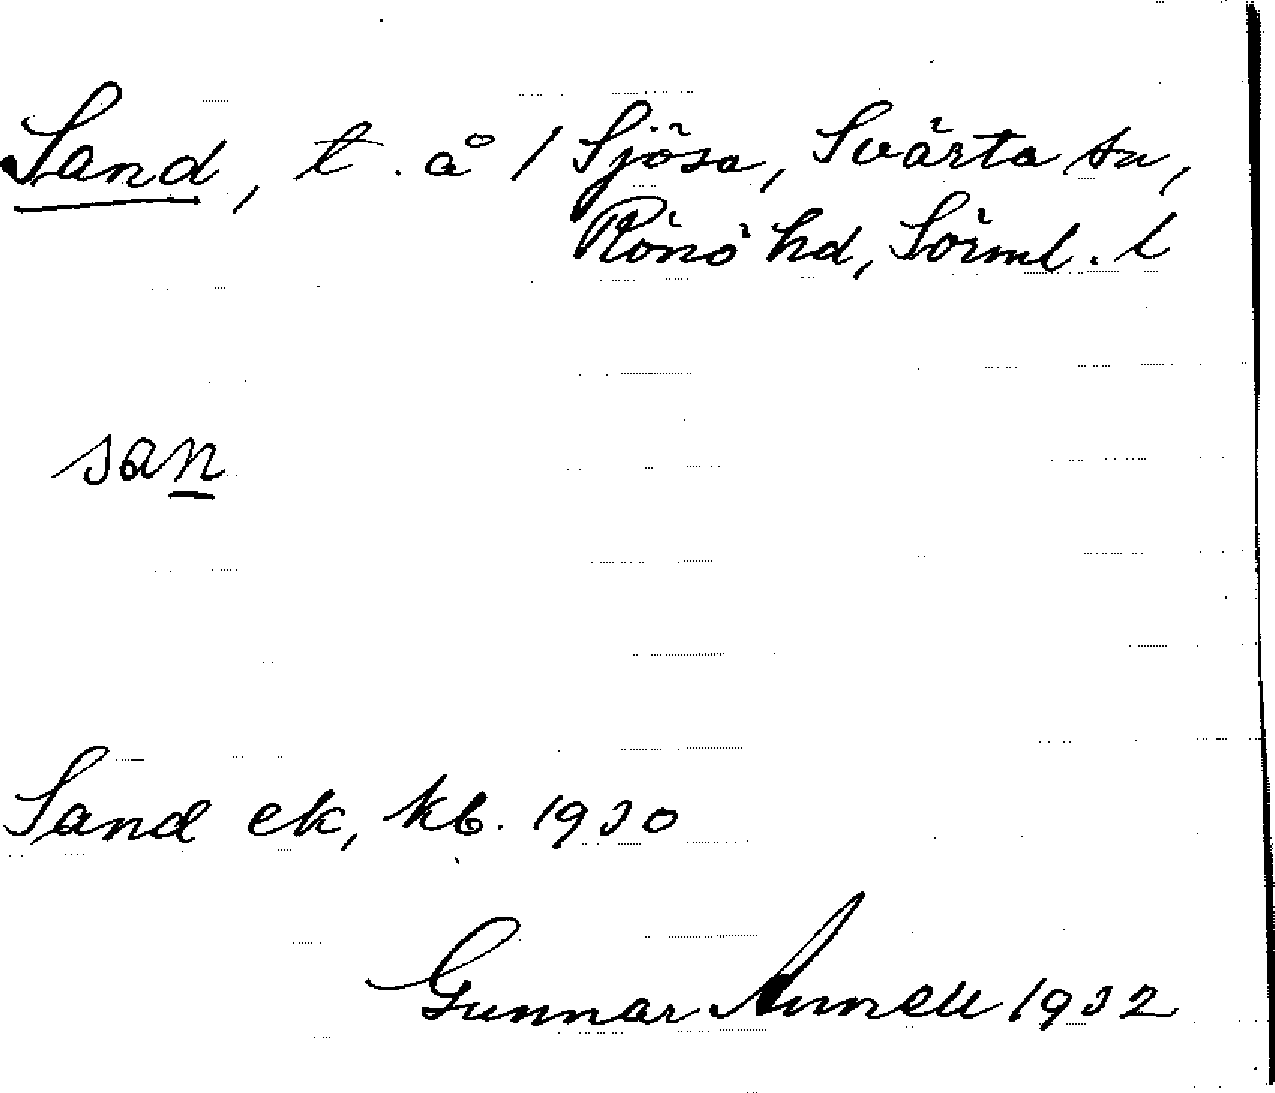 Sand, t. å / Sjösa, Svärta sn,
Rönö hd, Sörml. l
san
Sand ek, kb. 1930
Gunnar Annell 1932